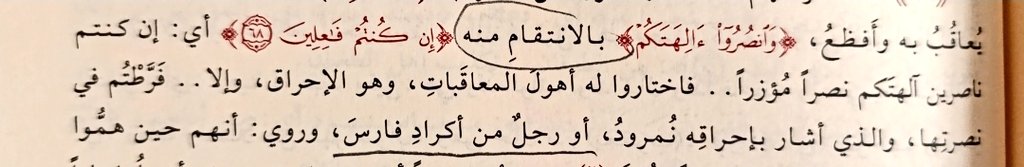 يُعاقَبُ به وأَفظعُ، ﴿وَٱنصُرُوٓاْ ءَالِهَتَكُمْ﴾ بالانتقامِ منه ﴿إِن كُنتُمْ فَٰعِلِينَ ۝٦٨﴾ أي: إن كنتم
ناصرين آلهتَكم نصراً مُؤزراً.. فاختاروا له أهولَ المعاقَباتِ، وهو الإحراق، وإلا.. فَرَّطْتُم في
نصرتِها، والذي أشار بإحراقِه نُمرودُ، أو رجلٌ من أكرادِ فارسَ، وروي: أنهم حين همُّوا